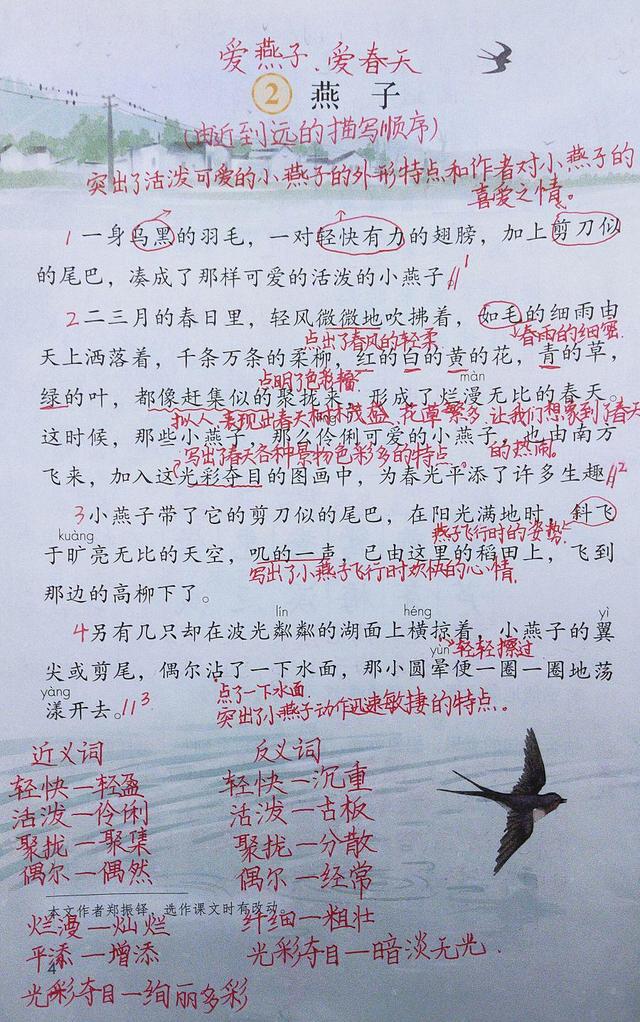 爱燕子、爱春天
2 燕子
(由近到远的描写顺序)
突出了活泼可爱的小燕子的外形特点和作者对小燕子的
喜爱之情。
1一身乌黑的羽毛，一对轻快有力的翅膀，加上剪刀似
的尾巴，凑成了那样可爱的活泼的小燕子。//1
2二三月的春日里，轻风微微地吹拂着，如毛的细雨由
点出了春风的轻柔 春雨的细密
天上洒落着，千条万条的柔柳，红的白的黄的花，青的草，
点明了色彩 màn
绿的叶，都像赶集似的聚拢来，形成了烂漫无比的春天。
拟人 表现出春天树木茂盛、花草繁多 让我们想象到了春天
这时候，那些小燕子，那么伶俐可爱的小燕子，也由南方
写出了春天各种景物色彩多的特点。 的热闹。
飞来，加入这光彩夺目的图画中，为春光平添了许多生趣。//2
3小燕子带了它的剪刀似的尾巴，在阳光满地时，斜飞
kuàng 燕子飞行时的姿势
于旷亮无比的天空，叽的一声，已由这里的稻田上，飞到
写出了小燕子飞行时欢快的心情
那边的高柳下了。
lín héng yì
4另有几只却在波光粼粼的湖面上横掠着，小燕子的翼
yùn 轻轻擦过
尖或剪尾，偶尔沾了一下水面，那小圆晕便一圈一圈地荡
yàng 点了一下水面
漾开去。//3
突出了小燕子动作迅速敏捷的特点。
近义词 反义词
轻快一轻盈 轻快一沉重
活泼一伶俐 活泼一古板
聚拢一聚集 聚拢一分散
偶尔一偶然 偶尔一经常
本文作者郑振铎，选作课文时有改动。
烂漫一灿烂 纤细一粗壮
平添一增添 光彩夺目一暗淡无光
4
光彩夺目一绚丽多彩